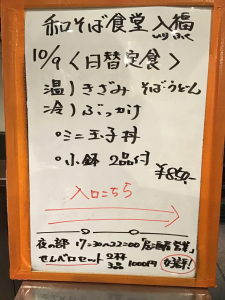 和そば食堂 入福
10/9 〈日替定食〉
温)きざみ そば・うどん
冷)ぶっかけ
・ミニ玉子丼
・小鉢 2品付
¥850-
入口こちら
夜の部 17:30〜22:00
せんべロセット 2杯 3品 1000円 好評!